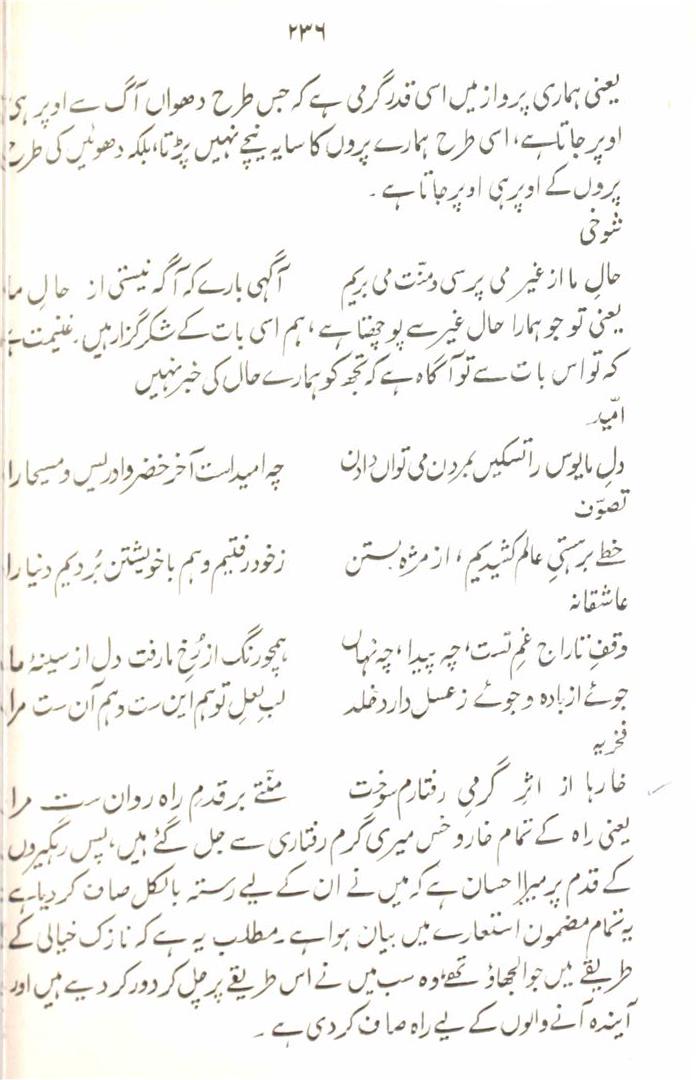 ۲۳۶
یعنی ہماری پرواز میں اسی قدر گرمی ہے کہ جس طرح دھواں آگ سے اوپر ہی
اوپر جاتا ہے، اسی طرح ہمارے پروں کا سایہ نیچے نہیں پڑتا، بلکہ دھوئیں کی طرح
پروں کے اوپر ہی اوپر جاتا ہے۔
شوخی
حالِ ما از غیر می پرسی و منّت می بریم آگہی بارے کہ آگہ نیستی از حالِ ما
یعنی تو جو ہمارا حال غیر سے پوچھتا ہے، ہم اسی بات کے شکر گزار ہیں۔ غنیمت ہے
کہ تو اس بات سے تو آگاہ ہے کہ تجھ کو ہمارے حال کی خبر نہیں
امّید
دلِ مایوس را تسکیں بمردن می تواں دادن چہ امید است آخر خضر و ادریس و مسیحا را
تصوّف
خطے بر ہستیِ عالم کشیدیم، از مژہ بستن ز خود رفتیم و ہم با خویشتن بُردیم دنیا را
عاشقانہ
وقفِ تاراجِ غمِ تست، چہ پیدا، چہ نہاں ہمچو رنگ از رُخِ ما رفت دل از سینۂ ما
جوئے از بادہ و جوئے ز عسل دارد خلد لبِ لعلِ تو ہم این ست و ہم آن ست مرا
فخریہ
خارہا از اثرِ گرمیِ رفتارم سوخت منّتے بر قدمِ راہ روان ست مرا
یعنی راہ کے تمام خار و خس میری گرم رفتاری سے جل گئے ہیں، پس رہگیروں
کے قدم پر میرا احسان ہے کہ میں نے ان کے لیے رستہ بالکل صاف کر دیا ہے
یہ تمام مضمون استعارے میں بیان ہوا ہے۔ مطلب یہ ہے کہ نازک خیالی کے
طریقے میں جو الجھاؤ تھے، وہ سب میں نے اس طریقے پر چل کر دور کر دیے ہیں اور
آیندہ آنے والوں کے لیے راہ صاف کر دی ہے۔